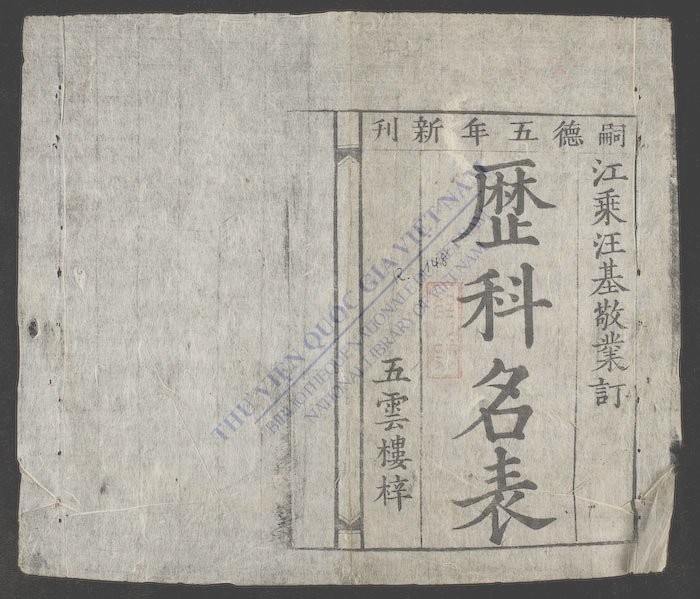 嗣德五年新刊
江乘汪基敬業訂
歷科名表
五雲樓梓
R. 1148
THƯ VIỆN QUỐC GIA VIỆT NAM
BIBLIOTHÈQUE NATIONALE DU VIETNAM
NATIONAL LIBRARY OF VIETNAM